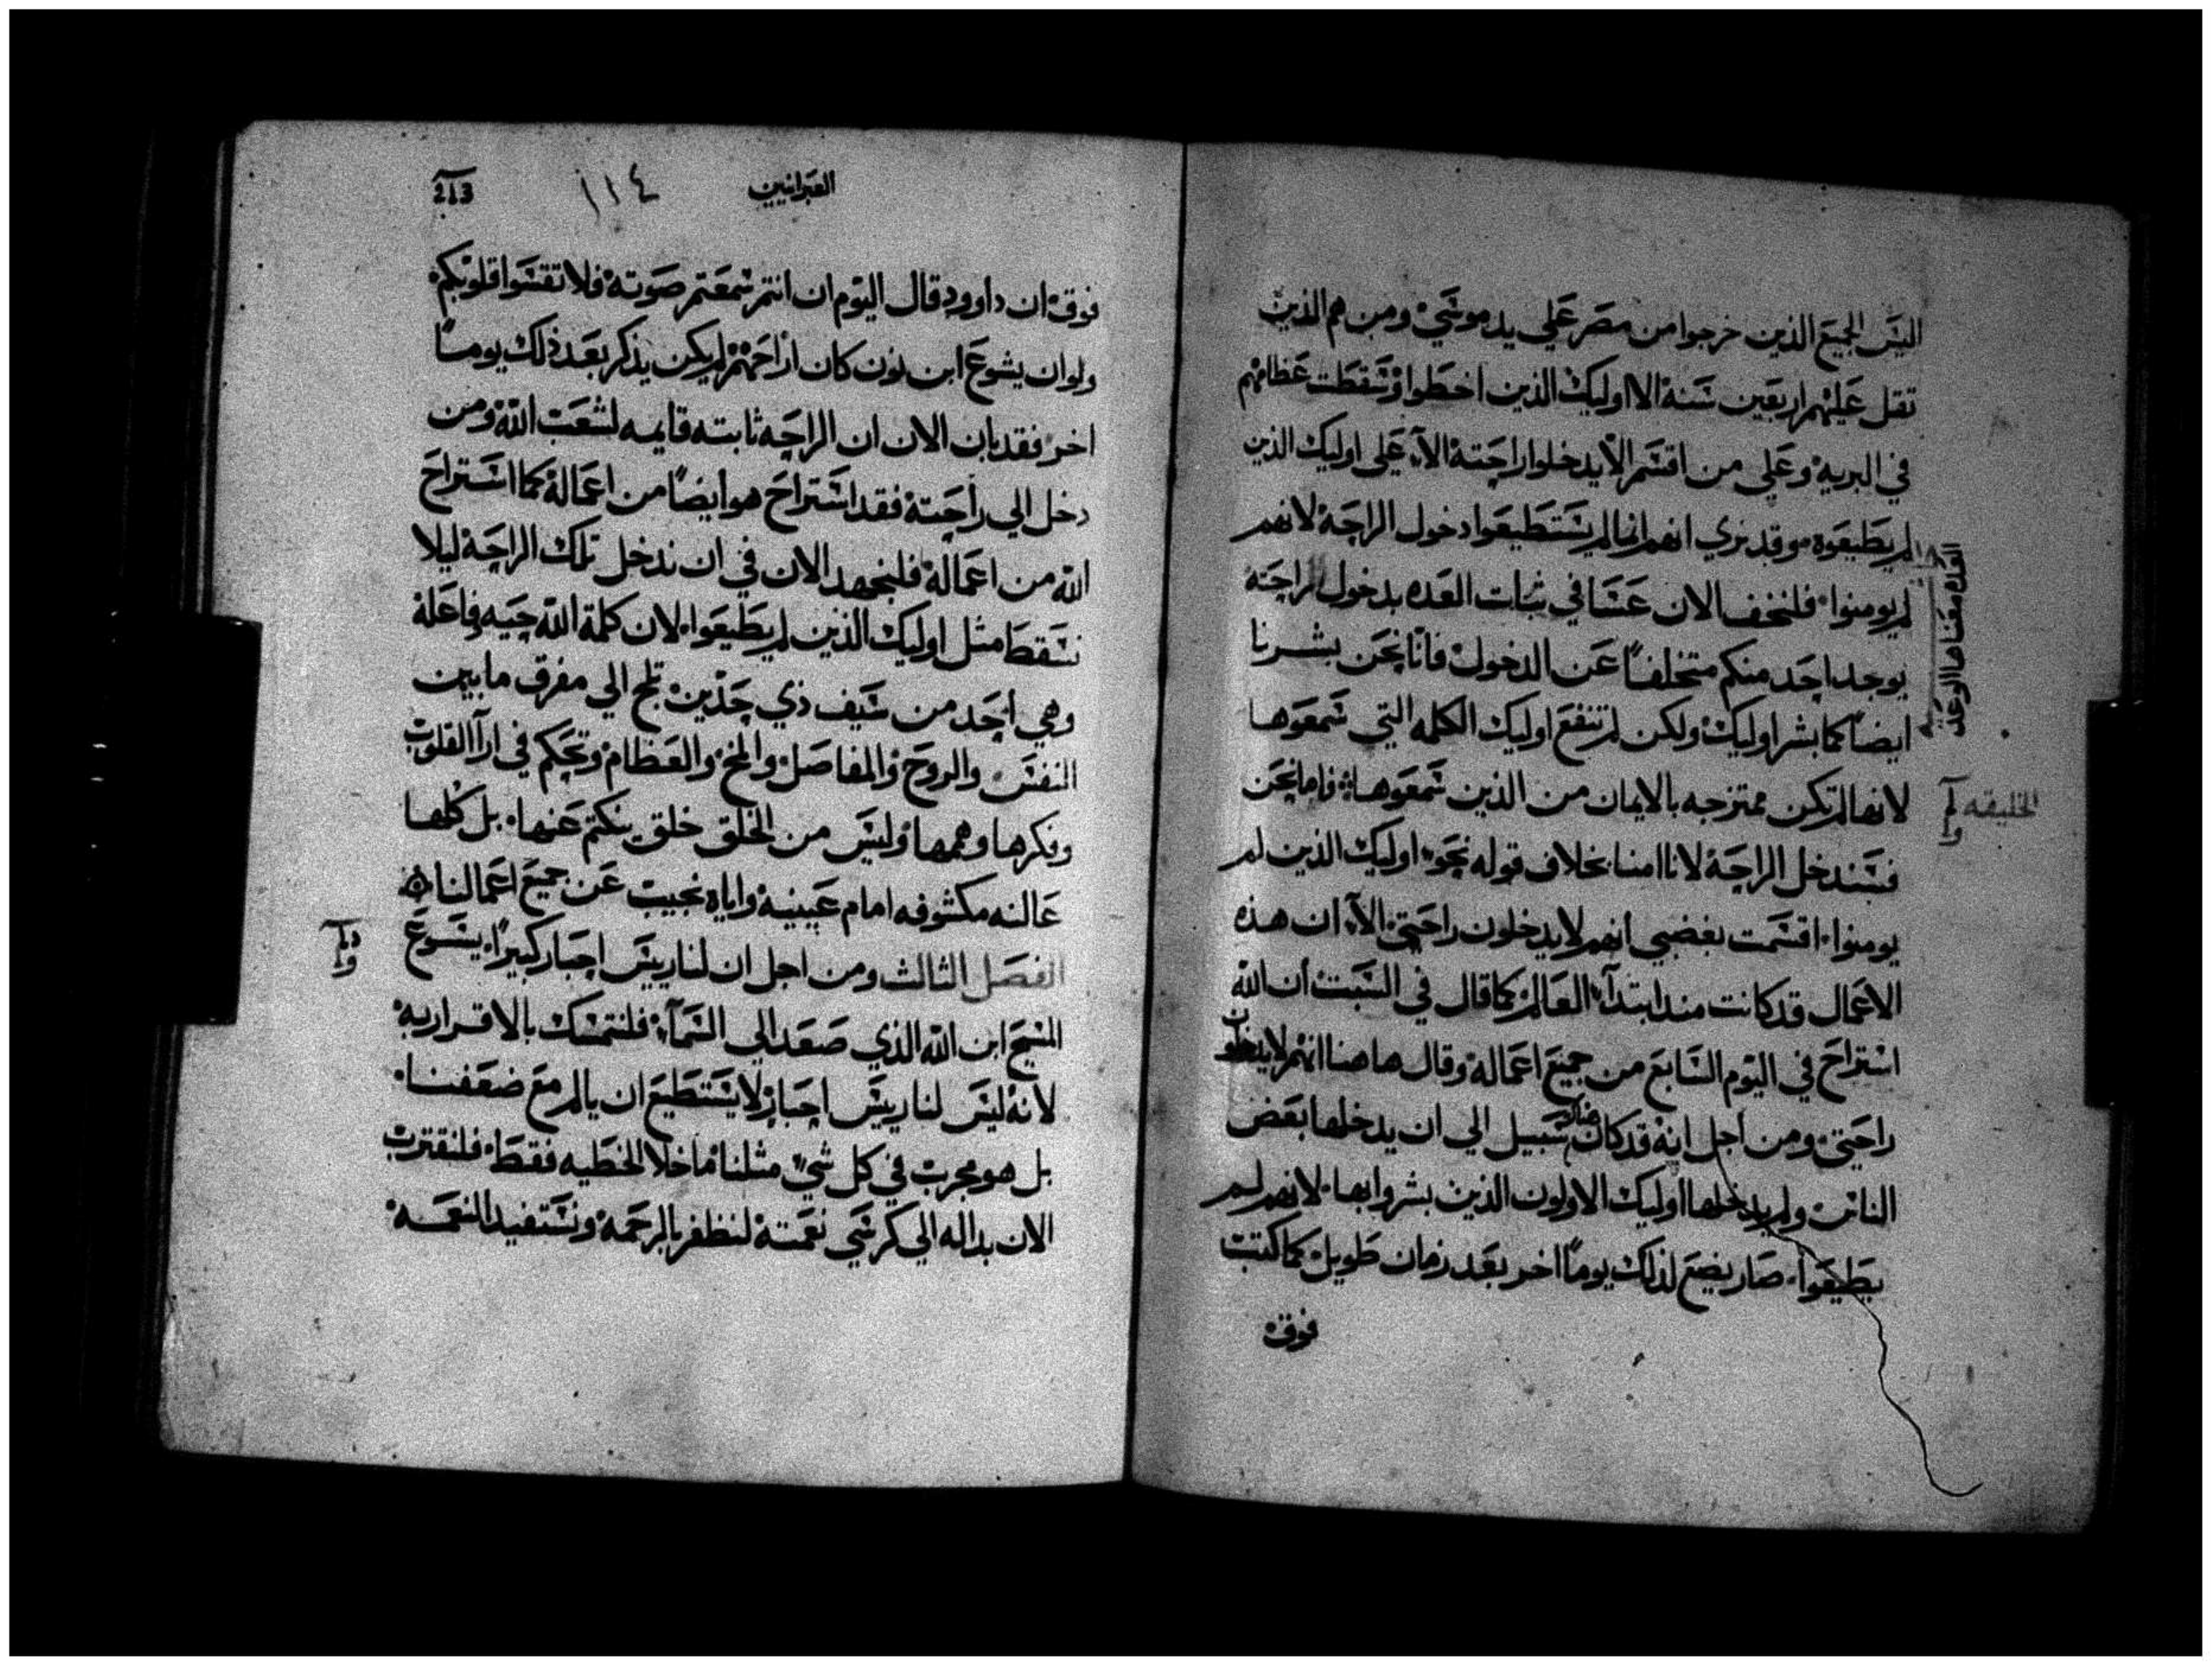 اليس الجميع الذين خرجوا من مصر علي يد موسي ومن هم الذين
تقل عليهم اربعين سنه الا اوليك الذين اخطوا وسقطت عظامهم
في البريه وعلي من اقسم الا يدخلوا راحته الا علي اوليك الذين
لم يطيعوه وقد نري انهم انما لم يستطيعوا دخول الراحه لانهم
لم يومنوا فلنخف الان عسا في ثبات العده بدخول الراحه
يوجد احد منكم متخلفاً عن الدخول فانا نحن بشرنا
ايضاً كما بشر اوليك ولكن لم تنفع اوليك الكلمه التي سمعوها
لانها لم تكن ممتزجه بالايمان من الذين سمعوها فاما نحن
فسندخل الراحه لاننا امنا بخلاف قوله نحو اوليك الذين لم
يومنوا اقسمت بغضبي انهم لا يدخلون راحتي الا ان هذه
الاعمال قد كانت مند ابتدآ العالم كما قال في السبت ان الله
استراح في اليوم السابع من جميع اعماله وقال هاهنا انهم لا يدخلون
راحتي ومن اجل انه قد كان هناك سبيل الي ان يدخلها بعض
الناس ولم يدخلها اوليك الاولون الذين بشروا بها لانهم لم
يطيعوا صار يضع لذلك يوماً اخر بعد زمان طويل كما كتب
فوق
العده معناها الوعد
الخليقه
العبرانيين
١١٤
213
فوق ان داوود قال اليوم ان انتم سمعتم صوته فلا تقسوا قلوبكم
ولو ان يشوع ابن نون كان اراحهم لم يكن يذكر بعد ذلك يوماً
اخر فقد بان الان ان الراحه ثابته قايمه لشعب الله ومن
دخل الي راحته فقد استراح هو ايضاً من اعماله كما استراح
الله من اعماله فلنجهد الان في ان ندخل تلك الراحه ليلا
نسقط مثل اوليك الذين لم يطيعوا لان كلمة الله حيه فاعله
وهي احد من سيف ذي حدين تلج الي مفرق ما بين
النفس والروح والمفاصل والمخ والعظام وتحكم في ارآ القلوب
وفكرها وهمها وليس من الخلق خلق ينكتم عنها بل كلها
عالنه مكشوفه امام عينيه واياه نجيب عن جميع اعمالنا
الفصل الثالث ومن اجل ان لنا رييس احبار كبيراً يسوع
المسيح ابن الله الذي صعد الي السمآ فلنتمسك بالاقرار به
لانه ليس لنا رييس احبار لا يستطيع ان يالم مع ضعفنا
بل هو مجرب في كل شي مثلنا ما خلا الخطيه فقط فلنقترب
الان بداله الي كرسي نعمته لنظفر بالرحمه ونستفيد النعمه